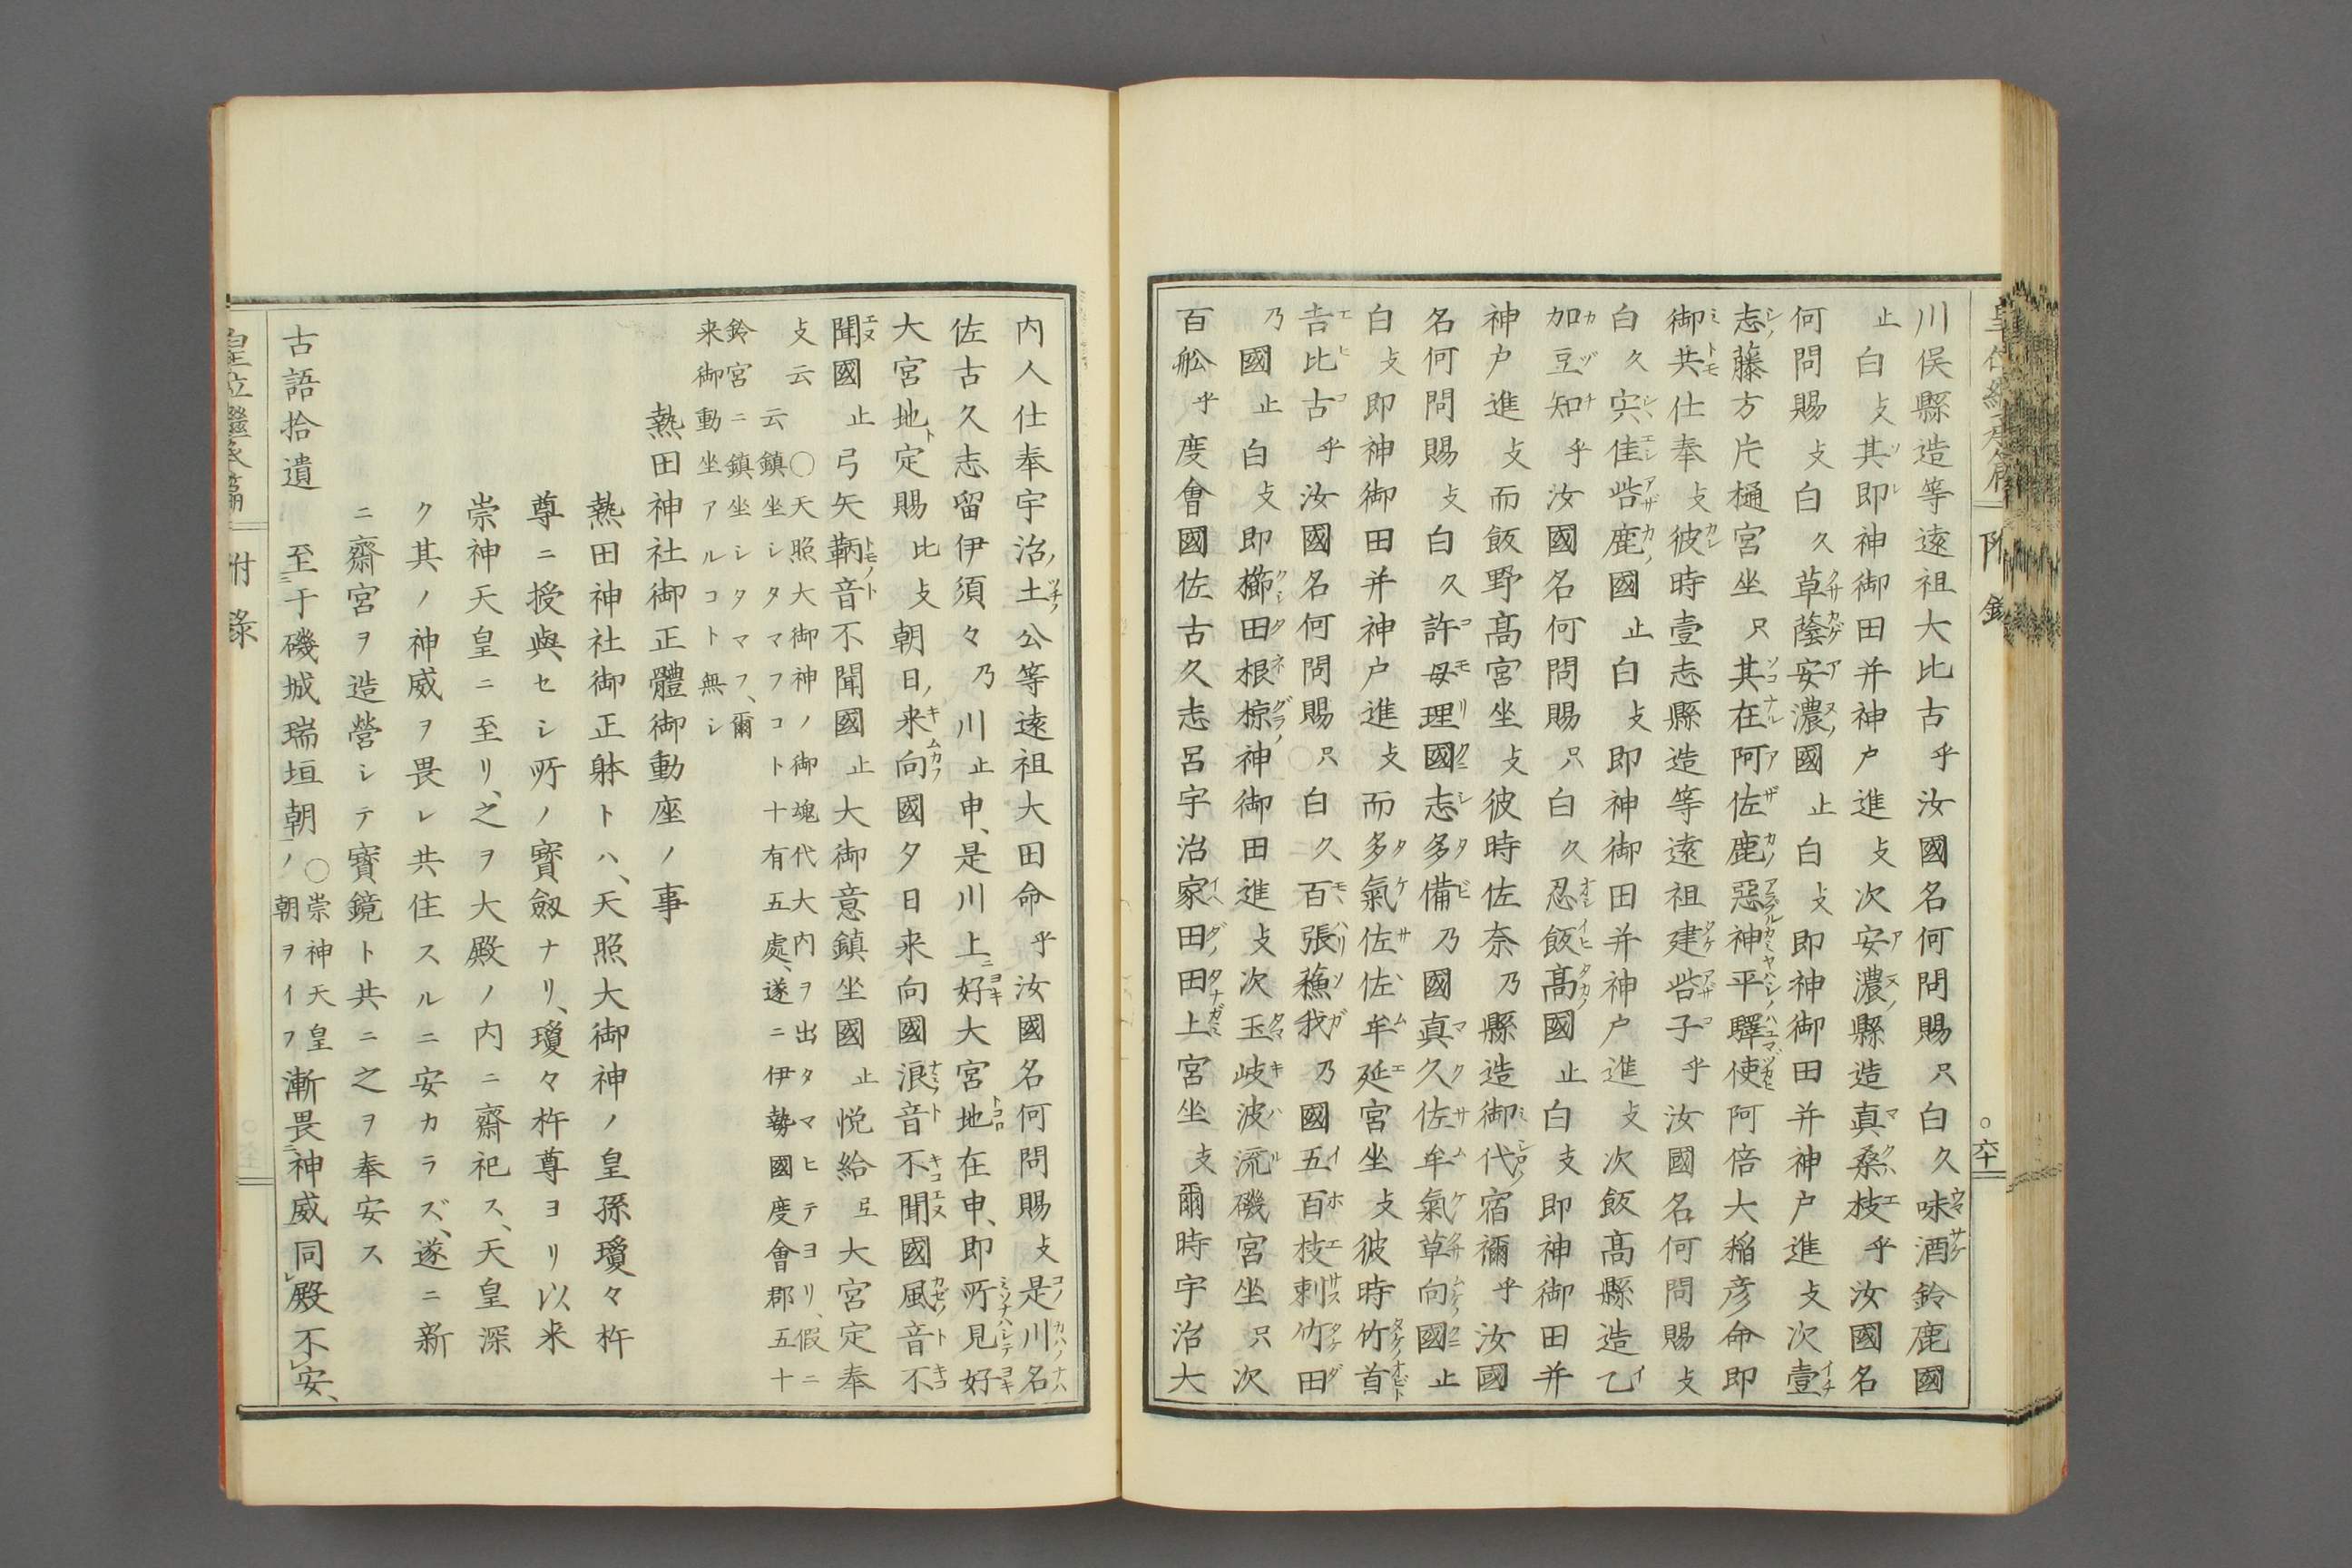 川俣縣造等遠祖大比古乎汝國名何問賜只白久味酒鈴鹿國
止白攴其即神御田并神戸進攴次安濃縣造真桑枝乎汝國名
何問賜攴白久草蔭安濃國止白攴即神御田并神戸進攴次壹
志藤方片樋宮坐只其在阿佐鹿惡神平驛使阿倍大稲彦命即
御共仕奉攴彼時壹志縣造等遠祖建呰子乎汝國名何問賜攴
白久宍佳呰鹿國止白攴即神御田并神戸進攴次飯髙縣造乙
加豆知乎汝國名何問賜只白久忍飯髙國止白支即神御田并
神戸進攴而飯野髙宮坐攴彼時佐奈乃縣造御代宿禰乎汝國
名何問賜攴白久許母理國志多備乃國真久佐牟氣草向國止
白攴即神御田并神戸進攴而多氣佐佐牟延宮坐攴彼時竹首
吉比古乎汝國名何問賜只白久百張蘓我乃國五百枝刺竹田
乃國止白攴即櫛田根椋神御田進攴次玉岐波流磯宮坐只次
百舩乎度會國佐古久志呂宇治家田田上宮坐支爾時宇治大
内人仕奉宇治土公等遠祖大田命乎汝國名何問賜攴是川名
佐古久志留伊須々乃川止申、是川上好大宮地在申、即所見好
大宮地定賜比攴朝日来向國夕日来向國浪音不聞國風音不
聞國止弓矢鞆音不聞國止大御意鎮坐國止悦給弖大宮定奉
攴云云○天照大御神ノ御魂代大内ヲ出タマヒテヨリ、假ニ
鎮坐シタマフコト十有五處、遂ニ伊勢國度會郡五十
鈴宮ニ鎮坐シタマフ、爾
来御動坐アルコト無シ
熱田神社御正體御動座ノ事
熱田神社御正躰トハ、天照大御神ノ皇孫瓊々杵
尊ニ授與セシ所ノ寶劔ナリ、瓊々杵尊ヨリ以来
崇神天皇ニ至リ、之ヲ大殿ノ内ニ齋祀ス、天皇深
ク其ノ神威ヲ畏レ共住スルニ安カラズ、遂ニ新
ニ齋宮ヲ造營シテ寶鏡ト共ニ之ヲ奉安ス
古語拾遺 至二于磯城瑞垣朝一ノ○崇神天皇朝ヲイフ漸畏二神威同レ殿不レ安、
皇位繼承篇 附錄